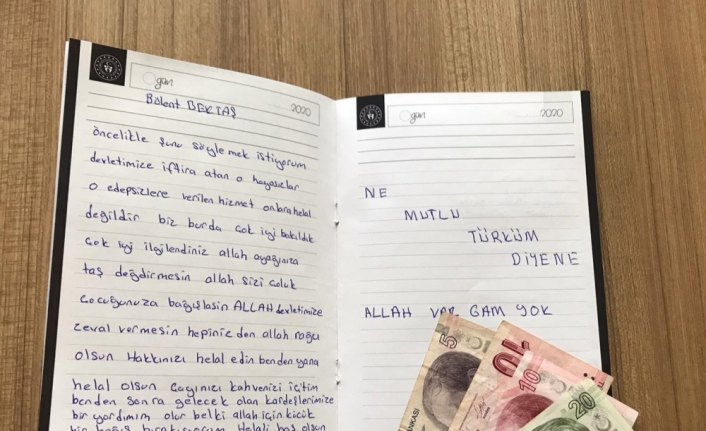 gün
2020
Bülent BEKTAŞ
öncelikle şunu söylemek istiyorum
devletimize iftira atan o hayasızlar
o edepsizlere verilen hizmet onlara helal
değildir biz burda çok iyi bakıldık
çok iyi ilgilendiniz allah ayağınıza
taş değdirmesin allah sizi çoluk
çocuğunuza bağışlasın ALLAH devletimize
zeval vermesin hepinizden allah razı
olsun Hakkınızı helal edin benden yana
helal olsun Çayınızı kahvenizi içtim
benden sonra gelecek olan kardeşlerimize
bir yardımım olur belki allah için küçük
bir bağış bırakıyorum Helali hoş olsun
gün
2020
NE
MUTLU
TÜRKÜM
DİYENE
ALLAH VAR GAM YOK
5
10
20
BANKASI